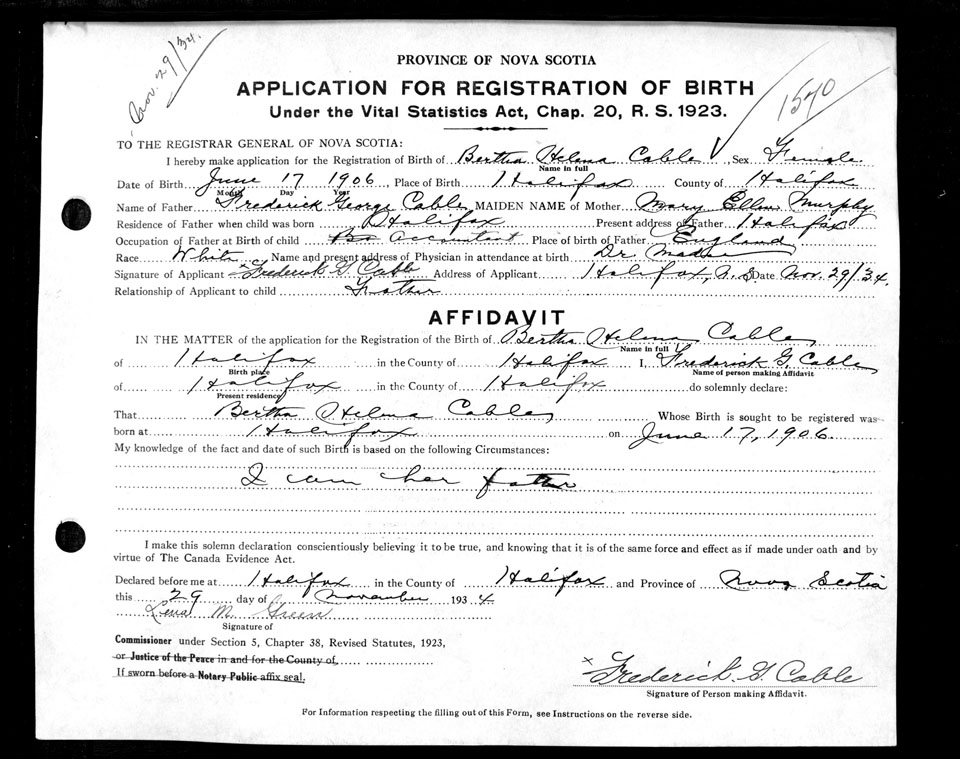 Nov. 29/34.
PROVINCE OF NOVA SCOTIA
APPLICATION FOR REGISTRATION OF BIRTH
Under the Vital Statistics Act, Chap. 20, R. S. 1923.
1570
TO THE REGISTRAR GENERAL OF NOVA SCOTIA:
I hereby make application for the Registration of Birth of Bertha Helena Cable Sex Female
Name in full
Date of Birth June 17 1906, Place of Birth Halifax County of Halifax
Month Day Year
Name of Father Frederick George Cable MAIDEN NAME of Mother Mary Ellen Murphy
Residence of Father when child was born Halifax Present address of Father Halifax
Occupation of Father at Birth of child Accountant Place of birth of Father England
Race White Name and present address of Physician in attendance at birth Dr
Signature of Applicant x Frederick G. Cable Address of Applicant Halifax, N.S. Date Nov. 29/34.
Relationship of Applicant to child Father
AFFIDAVIT
IN THE MATTER of the application for the Registration of the Birth of Bertha Helena Cable
Name in full
of Halifax in the County of Halifax I, Frederick G. Cable
Birth place Name of person making Affidavit
of Halifax in the County of Halifax do solemnly declare:
Present residence
That Bertha Helena Cable Whose Birth is sought to be registered was
born at Halifax on June 17, 1906.
My knowledge of the fact and date of such Birth is based on the following Circumstances:
I am her father
I make this solemn declaration conscientiously believing it to be true, and knowing that it is of the same force and effect as if made under oath and by
virtue of The Canada Evidence Act.
Declared before me at Halifax in the County of Halifax and Province of Nova Scotia
this 29 day of November 1934
Lena M. Green
Signature of
Commissioner under Section 5, Chapter 38, Revised Statutes, 1923,
or Justice of the Peace in and for the County of
If sworn before a Notary Public affix seal.
x Frederick G. Cable
Signature of Person making Affidavit.
For Information respecting the filling out of this Form, see Instructions on the reverse side.